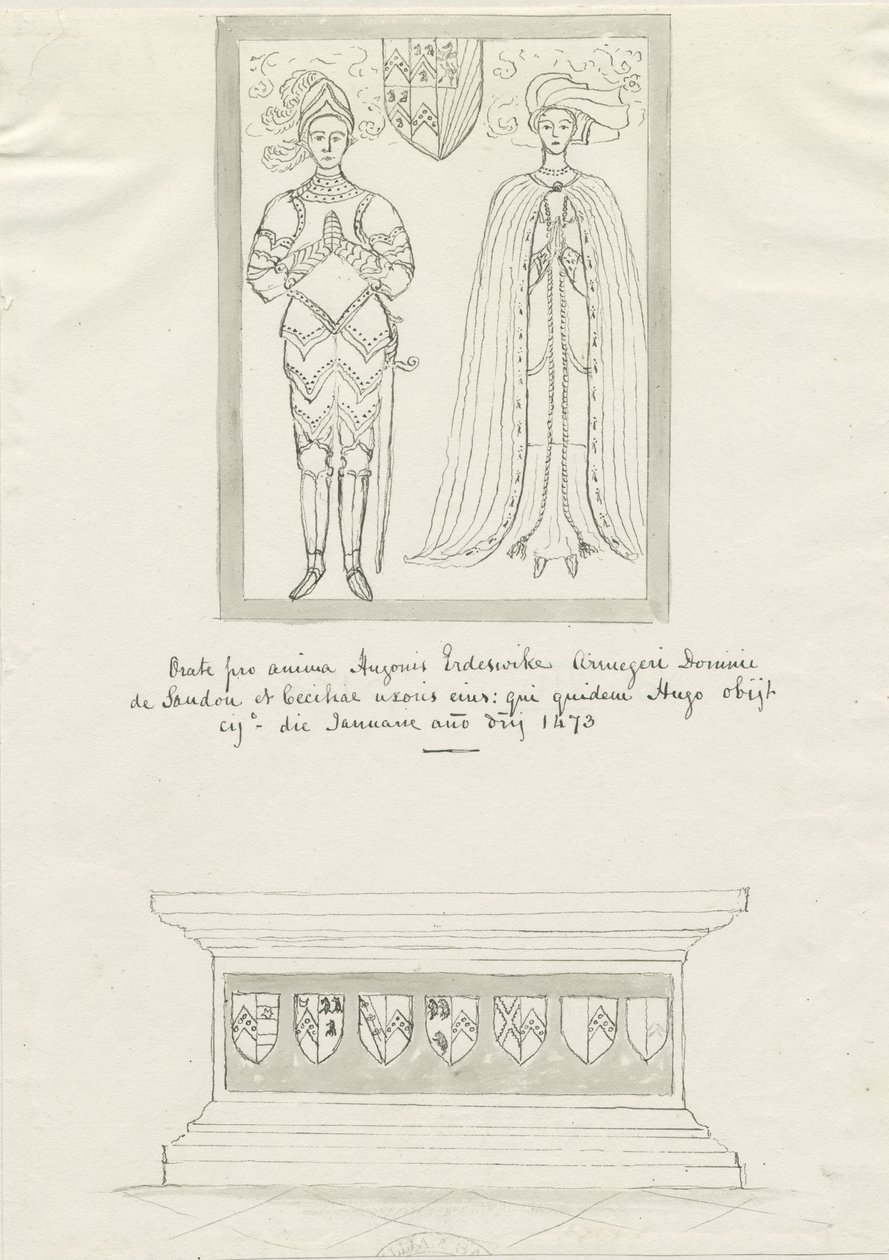 Orate pro anima Hugonis Erdeswike Armegeri Domini
de Sandon et Ceciliae uxoris eius: qui quidem Hugo obijt
cijº- die Januarie año dñj 1473